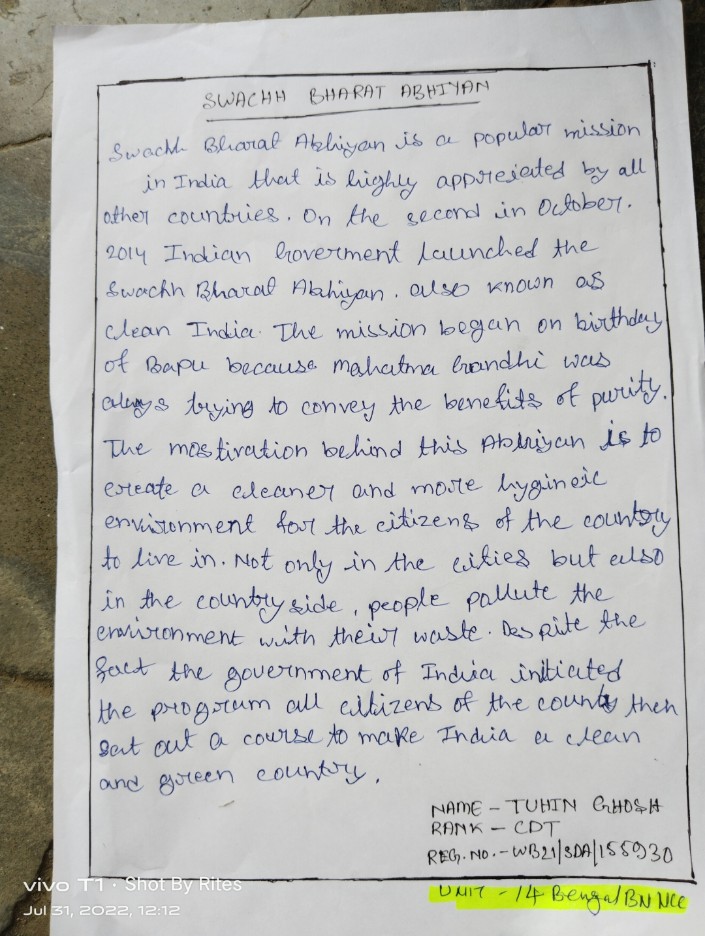 SWACHH BHARAT ABHIYAN
Swachh Bharat Abhiyan is a popular mission
in India that is highly appresiated by all
other countries. On the second in October.
2014 Indian Goverment launched the
Swachh Bharat Abhiyan. also known as
clean India. The mission began on birthday
of Bapu because mahatma Gandhi was
always trying to convey the benefits of purity.
The mostivation behind this Abhiyan is to
create a cleaner and more hygineic
environment for the citizens of the country
to live in. Not only in the cities but also
in the country side, people pollute the
environment with their waste. Des pite the
fact the government of India initiated
the program all citizens of the county then
sat out a course to make India a clean
and green country.
NAME - TUHIN GHOSH
RANK - CDT
REG. NO. - WB21/SDA/155930
UNIT - 14 Bengal BN NCC
vivo T1 · Shot By Rites
Jul 31, 2022, 12:12